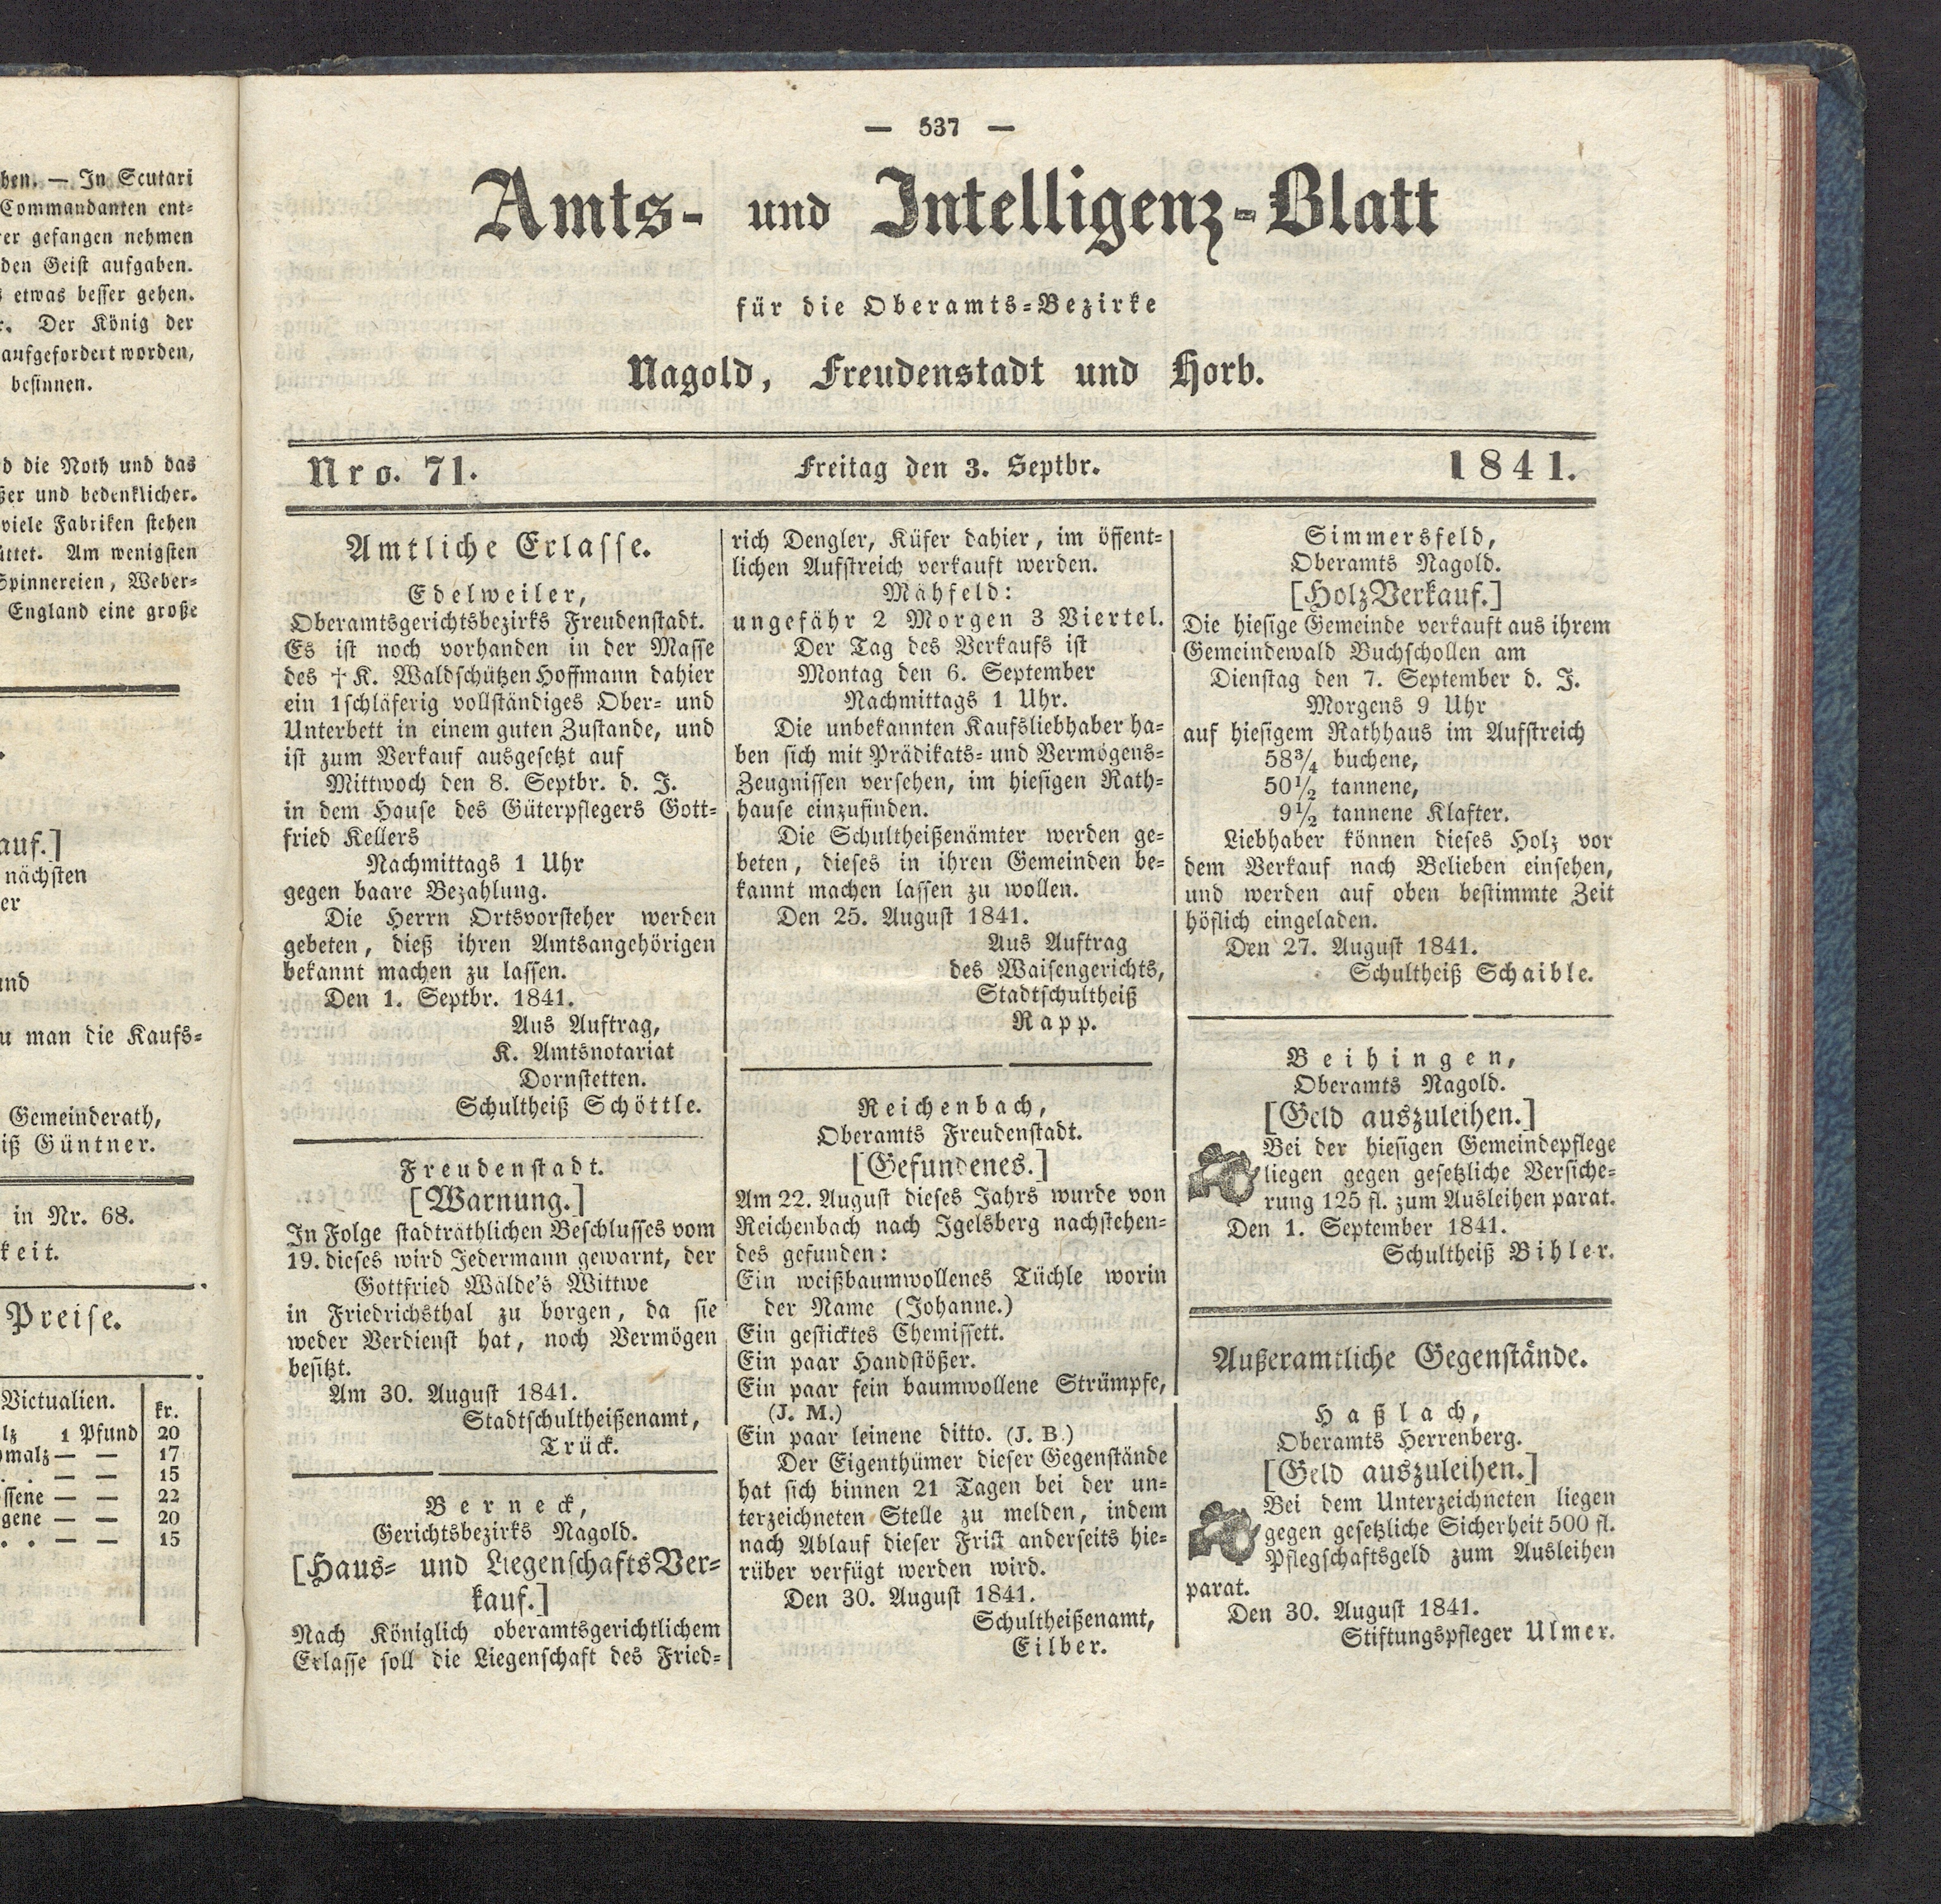 hen. — In Scutari
Commandanten ent-
er gefangen nehmen
den Geist aufgaben.
etwas besser gehen.
Der König der
aufgefordert worden,
besinnen.
d die Noth und das
ßer und bedenklicher.
viele Fabriken stehen
Am wenigsten
Spinnereien, Weber-
England eine große
auf.]
nächsten
er
und
u man die Kaufs-
Gemeinderath,
iß Güntner.
in Nr. 68.
keit.
Preise.
Victualien. kr.
lz 1 Pfund 20
malz — — 17
. . — — 15
ssene — — 22
gene — — 20
. . — — 15
— 537 —
Amts- und Intelligenz-Blatt
für die Oberamts-Bezirke
Nagold, Freudenstadt und Horb.
Nro. 71. Freitag den 3. Septbr. 1841.
Amtliche Erlasse.
Edelweiler,
Oberamtsgerichtsbezirks Freudenstadt.
Es ist noch vorhanden in der Masse
des † K. Waldschützen Hoffmann dahier
ein 1schläferig vollständiges Ober- und
Unterbett in einem guten Zustande, und
ist zum Verkauf ausgesetzt auf
Mittwoch den 8. Septbr. d. J.
in dem Hause des Güterpflegers Gott-
fried Kellers
Nachmittags 1 Uhr
gegen baare Bezahlung.
Die Herrn Ortsvorsteher werden
gebeten, dieß ihren Amtsangehörigen
bekannt machen zu lassen.
Den 1. Septbr. 1841.
Aus Auftrag,
K. Amtsnotariat
Dornstetten.
Schultheiß Schöttle.
Freudenstadt.
[Warnung.]
In Folge stadträthlichen Beschlusses vom
19. dieses wird Jedermann gewarnt, der
Gottfried Wälde's Wittwe
in Friedrichsthal zu borgen, da sie
weder Verdienst hat, noch Vermögen
besitzt.
Am 30. August 1841.
Stadtschultheißenamt,
Trück.
Berneck,
Gerichtsbezirks Nagold.
[Haus- und LiegenschaftsVer-
kauf.]
Nach Königlich oberamtsgerichtlichem
Erlasse soll die Liegenschaft des Fried-
rich Dengler, Küfer dahier, im öffent-
lichen Aufstreich verkauft werden.
Mähfeld:
ungefähr 2 Morgen 3 Viertel.
Der Tag des Verkaufs ist
Montag den 6. September
Nachmittags 1 Uhr.
Die unbekannten Kaufsliebhaber ha-
ben sich mit Prädikats- und Vermögens-
Zeugnissen versehen, im hiesigen Rath-
hause einzufinden.
Die Schultheißenämter werden ge-
beten, dieses in ihren Gemeinden be-
kannt machen lassen zu wollen.
Den 25. August 1841.
Aus Auftrag
des Waisengerichts,
Stadtschultheiß
Rapp.
Reichenbach,
Oberamts Freudenstadt.
[Gefundenes.]
Am 22. August dieses Jahrs wurde von
Reichenbach nach Igelsberg nachstehen-
des gefunden:
Ein weißbaumwollenes Tüchle worin
der Name (Johanne.)
Ein gesticktes Chemissett.
Ein paar Handstößer.
Ein paar fein baumwollene Strümpfe,
(J. M.)
Ein paar leinene ditto. (J. B.)
Der Eigenthümer dieser Gegenstände
hat sich binnen 21 Tagen bei der un-
terzeichneten Stelle zu melden, indem
nach Ablauf dieser Frist anderseits hie-
rüber verfügt werden wird.
Den 30. August 1841.
Schultheißenamt,
Eilber.
Simmersfeld,
Oberamts Nagold.
[HolzVerkauf.]
Die hiesige Gemeinde verkauft aus ihrem
Gemeindewald Buchschollen am
Dienstag den 7. September d. J.
Morgens 9 Uhr
auf hiesigem Rathhaus im Aufstreich
58¾ buchene,
50½ tannene,
9½ tannene Klafter.
Liebhaber können dieses Holz vor
dem Verkauf nach Belieben einsehen,
und werden auf oben bestimmte Zeit
höflich eingeladen.
Den 27. August 1841.
Schultheiß Schaible.
Beihingen,
Oberamts Nagold.
[Geld auszuleihen.]
Bei der hiesigen Gemeindepflege
liegen gegen gesetzliche Versiche-
rung 125 fl. zum Ausleihen parat.
Den 1. September 1841.
Schultheiß Bihler.
Außeramtliche Gegenstände.
Haßlach,
Oberamts Herrenberg.
[Geld auszuleihen.]
Bei dem Unterzeichneten liegen
gegen gesetzliche Sicherheit 500 fl.
Pflegschaftsgeld zum Ausleihen
parat.
Den 30. August 1841.
Stiftungspfleger Ulmer.